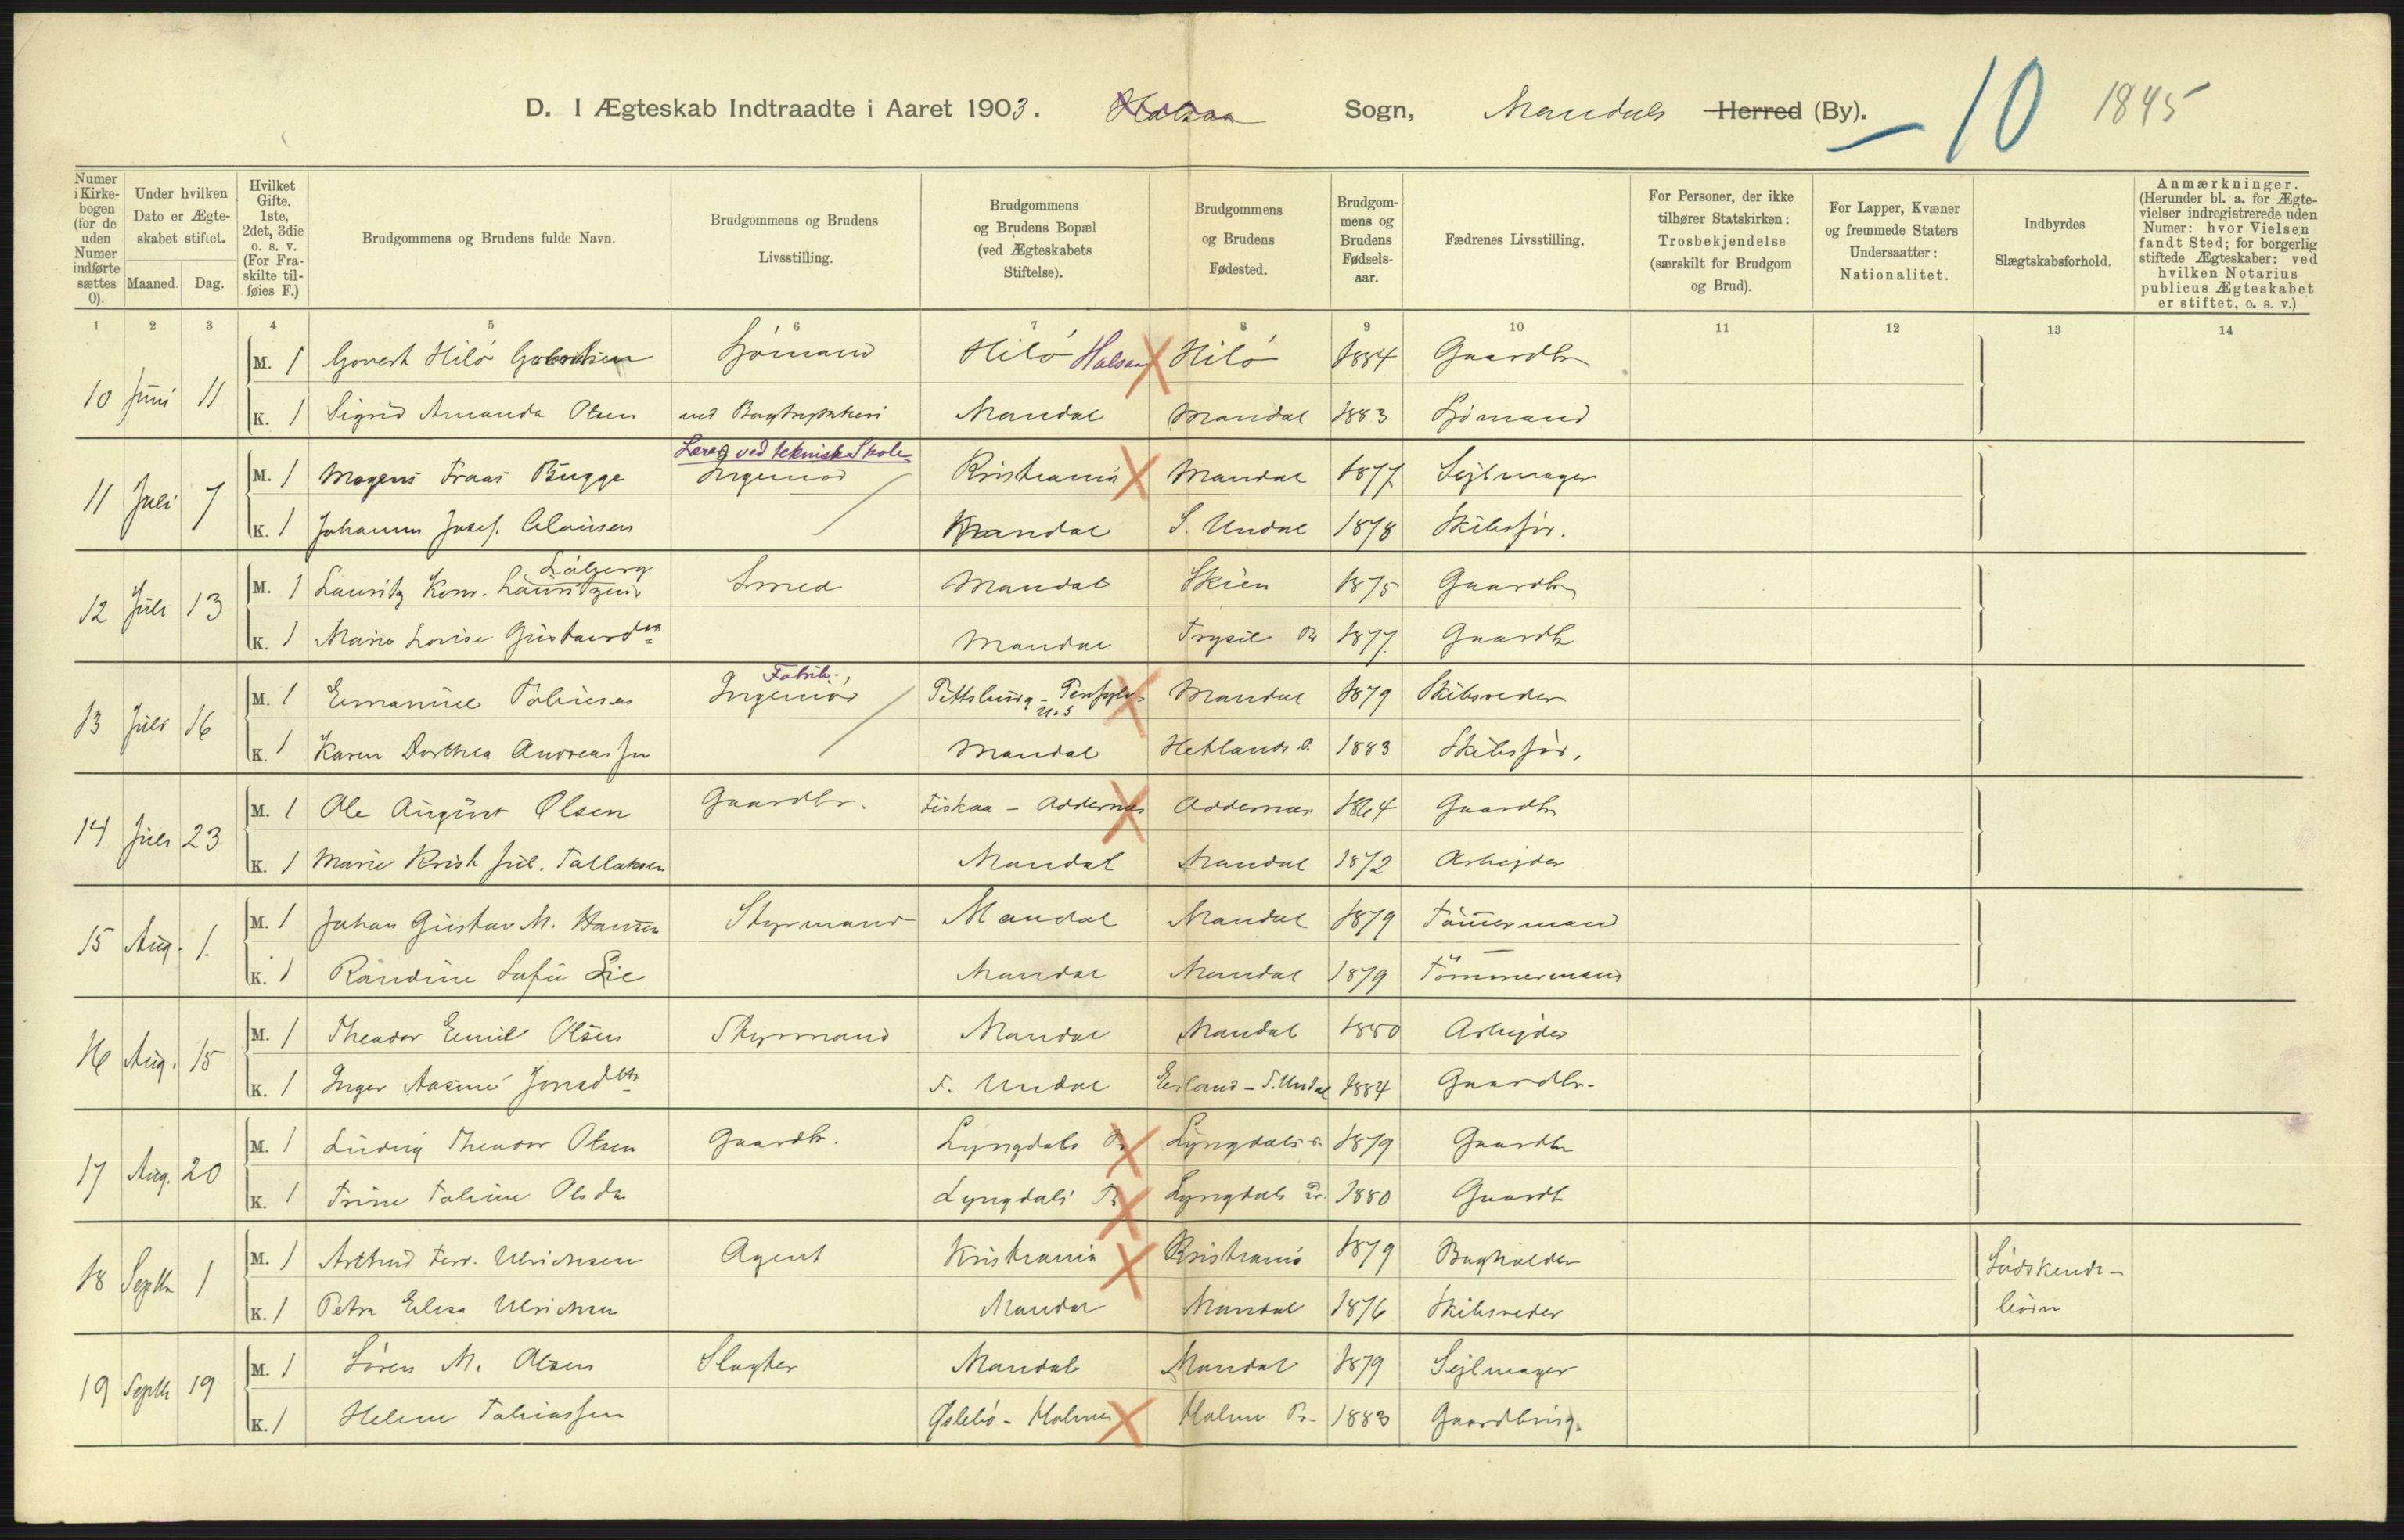 D. I Ægteskab Indtraadte i Aaret 1903. Halsaa Sogn, Mandals Herred (By). — 10 1845
Numer i Kirkebogen (for de uden Numer indførte sættes 0).
Under hvilken Dato er Ægteskabet stiftet.
Maaned. Dag.
Hvilket Gifte. 1ste, 2det, 3die o. s. v. (For Fraskilte tilføies F.)
Brudgommens og Brudens fulde Navn.
Brudgommens og Brudens Livsstilling.
Brudgommens og Brudens Bopæl (ved Ægteskabets Stiftelse).
Brudgommens og Brudens Fødested.
Brudgommens og Brudens Fødselsaar.
Fædrenes Livsstilling.
For Personer, der ikke tilhører Statskirken: Trosbekjendelse (særskilt for Brudgom og Brud).
For Lapper, Kvæner og fremmede Staters Undersaatter: Nationalitet.
Indbyrdes Slægtskabsforhold.
Anmærkninger. (Herunder bl. a. for Ægtevielser indregistrerede uden Numer: hvor Vielsen fandt Sted; for borgerlig stiftede Ægteskaber: ved hvilken Notarius publicus Ægteskabet er stiftet, o. s. v.)
1 2 3 4 5 6 7 8 9 10 11 12 13 14
10 Juni 11
M. 1 Govert Hilö Sjömand Hilö Halsaa Hilö 1884 Gaardbr
K. 1 Sigrid Amanda Olsen ved Mandal Mandal 1883 Sjömand
11 Juli 7
Lærer ved tekniske Skole
M. 1 Mogens Fraas Bugge Ingeniör Kristiania Mandal 1877 Sejlmager
K. 1 Johanna Josef. Clausen Mandal S. Undal 1878 Skibsför.
12 Juli 13
M. 1 Lauritz Konr. Lauritzen Smed Mandal Skien 1875 Gaardbr
K. 1 Marie Lovise Gustavsdtr Mandal Trysil Pr 1877 Gaardbr
13 Juli 16
Fabrik
M. 1 Emanuel Tobiesen Ingeniör Pittsburg - U.S Mandal 1879 Skibsreder
K. 1 Karen Dorthea Andreassen Mandal Hetlands P. 1883 Skibsför.
14 Juli 23
M. 1 Ole August Olsen Gaardbr. Fiskaa - Oddernes Oddernes 1864 Gaardbr
K. 1 Marie Krist. Jul. Tallaksen Mandal Mandal 1872 Arbejder
15 Aug. 1.
M. 1 Johan Gustav M. Hansen Styrmand Mandal Mandal 1879 Tömmermand
K. 1 Randine Sofie Lie Mandal Mandal 1879 Tömmermand
16 Aug. 15
M. 1 Theodor Emil Olsen Styrmand Mandal Mandal 1880 Arbejder
K. 1 Inger Aasine Jonsdtr S. Undal S. Undal 1884 Gaardbr.
17 Aug. 20
M. 1 Ludvig Theodor Olsen Gaardbr. Lyngdals Pr Lyngdals Pr. 1879 Gaardbr
K. 1 Trine Tobine Olsdtr Lyngdals Pr Lyngdals Pr. 1880 Gaardb
18 Septbr 1
M. 1 Ferd. Ulrichsen Agent Kristiania Kristiania 1879 Bogholder Södskende-
K. 1 Petra Elisa Ulrichsen Mandal Mandal 1876 Skibsreder börn
19 Septbr 19
M. 1 Sören M. Olsen Slagter Mandal Mandal 1879 Sejlmager
K. 1 Helene Tobiassen Öslebö - Holmes Holme Pr. 1883 Gaardbrug.